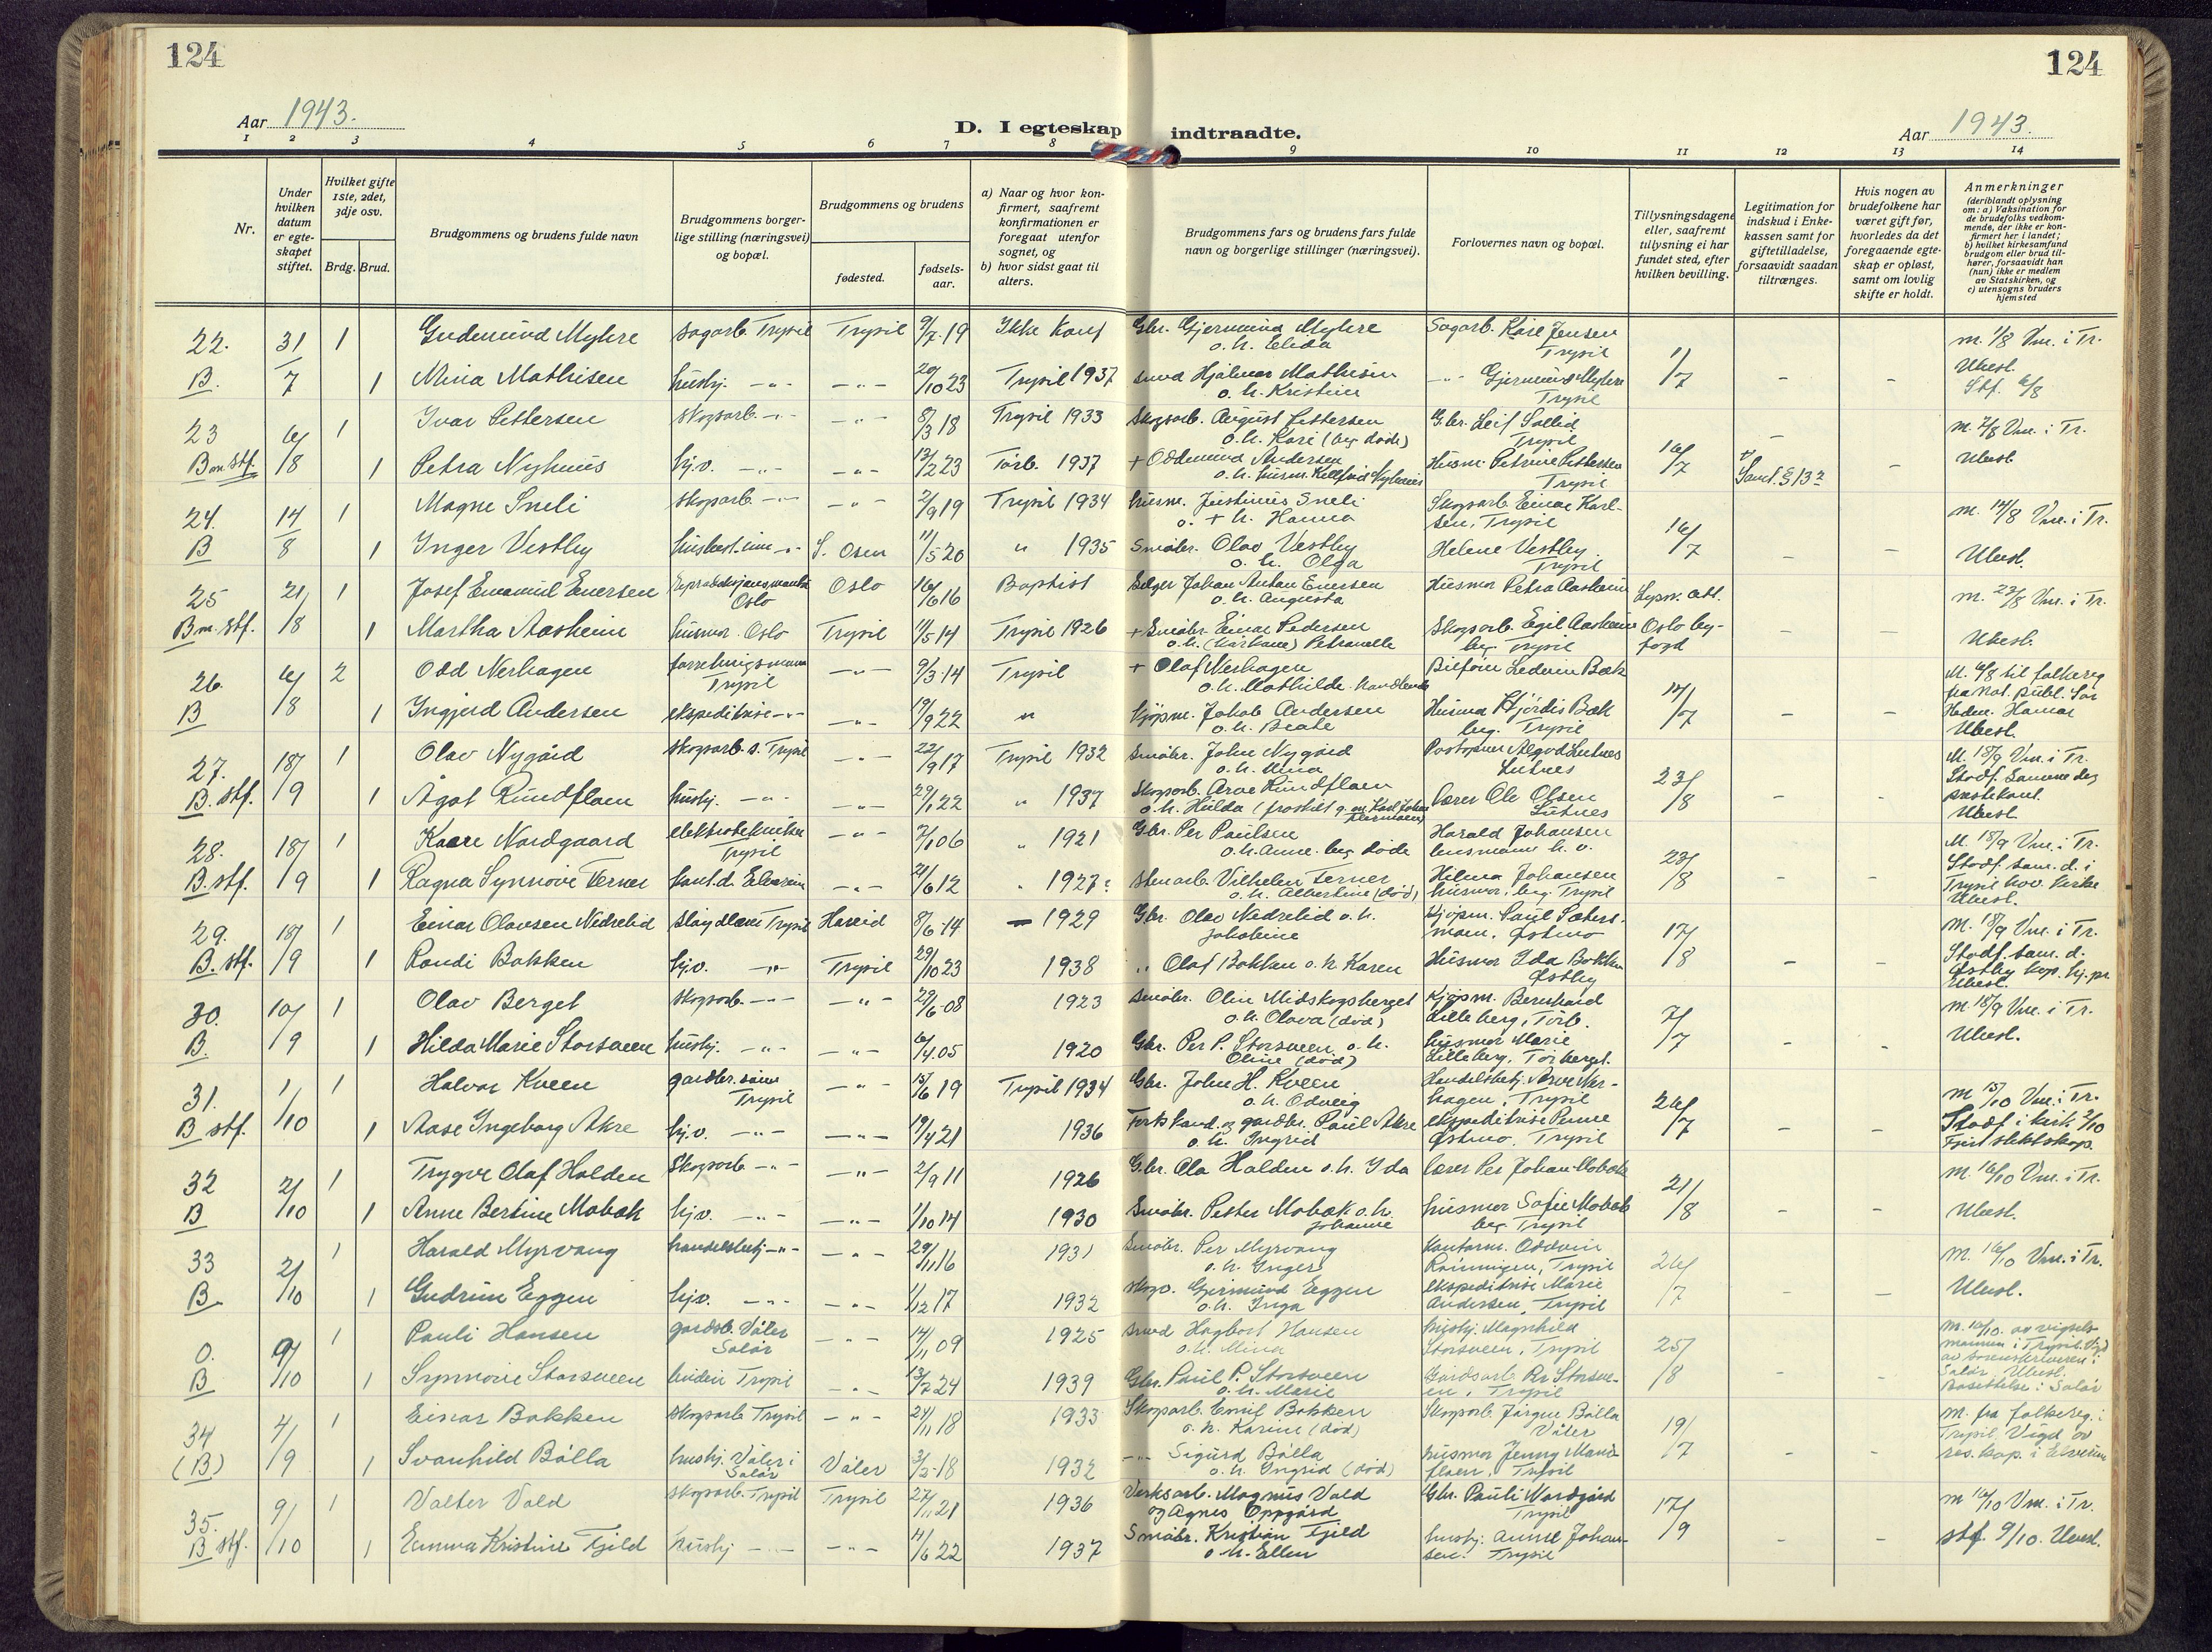 124
124
Aar 1943.
D. I egteskap indtraadte.
Aar 1943.
1 2 3 4 5 6 7 8 9 10 11 12 13 14
Nr.
Under hvilken datum er egte-skapet stiftet.
Hvilket gifte 1ste, 2det, 3dje osv.
Brdg. Brud.
Brudgommens og brudens fulde navn
Brudgommens borger-lige stilling (næringsvei) og bopæl.
Brudgommens og brudens
fødested.
fødsels-aar.
a) Naar og hvor kon-firmert, saafremt konfirmationen er foregaat utenfor sognet, og
b) hvor sidst gaat til alters.
Brudgommens fars og brudens fars fulde navn og borgerlige stillinger (næringsvei).
Forlovernes navn og bopæl.
Tillysningsdagene eller, saafremt tillysning ei har fundet sted, efter hvilken bevilling.
Legitimation for indskud i Enke-kassen samt for giftetilladelse, forsaavidt saadan tiltrænges.
Hvis nogen av brudefolkene har været gift før, hvorledes da det foregaaende egte-skap er opløst, samt om lovlig skifte er holdt.
Anmerkninger (deriblandt oplysning om: a) Vaksination for de brudefolks vedkom-mende, der ikke er kon-firmert her i landet; b) hvilket kirkesamfund brudgom eller brud til-hører, forsaavidt han (hun) ikke er medlem av Statskirken, og c) utensogns bruders hjemsted
22. 31/7 1 Gudmund Myhre sagarb. Trysil Trysil 9/7.19 Ikke konf Gbr. Gjermund Myhre o.h. Elida Sagarb. Kåre Jensen Trysil 1/7 m. 1/8 Vm. i Tr.
B. 1 Mina Mathisen hushj. -"- -"- 20/10 23 Trysil 1937 smed Hjalmar Mathisen o.h. Kristine -"- Gjermund Myhre Trysil - - Ubesl. Stf. 6/8
23 6/8 1 Ivar Pettersen skogsarb -"- -"- 8/3 18 Trysil 1933 Skogsarb. August Pettersen o.h. Kari (beg døde) Gbr. Leif Sollid Trysil 16/7 - m. 7/8 Vm. i Tr.
B m. stf. 1 Petra Nyhuus hj.v. -"- -"- 12/2 23 Törb. 1937 + Oddmund Andersen Husm. Petrine Pettersen Trysil Saml. § 13 2 - Ubesl.
24. 14/8 1 Magne Sneli skogsarb -"- -"- 2/9 19 Trysil 1934 husm. Justinus Sneli o. + h. Hanna Skogsarb Einar Karl-sen, Trysil 16/7 m. 14/8 Vm. i Tr.
B 1 Inger Vestby -"- S. Osen 11/5 20 " 1935 Småbr. Olav Vestby o. h. Olga Helene Vestby Trysil - - Ubesl.
25 21/8 1 Josef Emanuel Enersen Oslo Oslo 16/6 16 Baptist Selger Johan Anton Enersen o.h. Augusta Husmor Petra Aasheim Lysn. att. m. 22/8 Vm. i Tr.
B m. stf. 1 Martha Aasheim husmor Oslo Trysil 11/5 14 Trysil 1926 + Småbr. Einar Pedersen Petronelle Skogsarb. Egil Aasheim beg. Trysil Oslo by-fogd - - Ubesl.
26. 6/8 2 Odd Nerhagen forretningsmann Trysil -"- 9/3.14 Trysil + Olaf Nerhagen o.h. Mathilde 14/7 M. 6/8 til folkereg
B 1 Ingjerd Andersen ekspeditrise -"- -"- 19/9 22 " kjøpm. Jakob Andersen o.h. Beate Husmor Hjördis Bæk beg. Trysil - - Hamar Ubesl.
27. 18/9 1 Olav Nygård skogsarb. s. Trysil -"- 22/9 17 Trysil 1932 Småbr. John Nygård o.h. Mina Lutnes 23/8 M. 18/9 Vm. i Tr.
B. stf. 1 Ågot Rundfloen hushj. -"- -"- 29/1 22 " 1937 Skogsarb. Arve Rundfloen o.h. Hulda lærer Ole Olsen Lutnes - - Stadf. samme dag Ubesl.
28. 18/9 1 Kaare Nordgaard elektrotekniker Trysil -"- 7/1 06 " 1921 Gbr. Per Paulsen o.h. Anne. beg døde Harald Johansen lensmann h. v. 23/8 M. 18/9 Vm. i Tr.
B. stf. 1 Ragna Synnøve Terner -"- 21/6 12 " 1927 Stenarb. Vilhelm Terner o.h. Albertine (död) Helma Johansen husmor, beg. Trysil - - Stadf. sam. d. i Trysil hov. kirke Ubesl.
29. 18/9 1 Einar Olavsen Nedrelid sløydlærer Trysil Hareid 8/6.14 1929 Gbr. Olav Nedrelid o.h. Jakobine Kjöpm. Paul Sæters-moen, Østmo 17/8 M. 18/9 Vm. i Tr.
B. stf. 1 Randi Bakken hj.v. -"- Trysil 29/10 23 1938 " Olaf Bakken o.h. Karen Husmor Ida Bakken Østby - - Stadf. sam. d. Østby kap. Ubesl.
30. 10/9 1 Olav Berget skogsarb. -"- -"- 29/6.08 1923 Småbr. Olin Midskogsberget o.h. Olava (död) Kjöpm. Bernhard Lilleberg, Törb. 7/7 m 18/9 Vm. i Tr.
B. 1 Hilda Marie Storsveen hushj. -"- -"- 6/4.05 1920 Gbr. Per P. Storsveen o.h. Oline (död) husmor Marie Lilleberg, Törberget. - - Ubesl.
31. 1/10 1 Halvor Kveen gardbr. sönn Trysil -"- 15/6 19 Trysil 1934 Gbr. John H. Kveen o.h. Odveig Handelsbetj. Arve Ner-hagen, Trysil 26/7 m 15/10 Vm. i Tr.
B stf. 1 Aase Ingeborg Akre hj.v. -"- -"- 19/4 21 1936 Forstkand. og gardbr. Paul Akre o.h. Ingrid ekspeditrise Østmo, Trysil - - Stadf i kirk. 2/10
32 2/10 1 Trygve Olaf Halden Skogsarb -"- -"- 2/9 11 1926 Gbr. Ola Halden o.h. Ida lærer Per Johan Mobæk 21/8 m. 16/10 Vm. i Tr.
B 1 Anne Bertine Mobæk hj.v. -"- -"- 1/10 14 1930 Småbr. Petter Mobæk o.h. Johanne husmor Sofie Mobæk beg. Trysil - - Ubesl.
33 2/10 1 Harald Myrvang handelsbetj -"- -"- 29/11 16 1931 Småbr. Per Myrvang o.h. Inger Kontorm. Oddvin Rönningen, Trysil 26/7 M. 16/10 Vm. i Tr.
B. 1 Gudrun Eggen hj.v. -"- -"- 1/12 17 1932 skogs. Gjermund Eggen o.h. Inga ekspeditrise Marie Andersen, Trysil - - Ubesl.
0. 9/10 1 Pauli Hansen gardsb. Våler Solør -"- 14/11 09 1925 smed Hagbart Hansen o.h. Mina hushj. Magnhild Storsveen, Trysil 25/8 M. 10/10.
B 1 Synnøve Storsveen Trysil -"- 13/7 24 1939 Gbr. Paul P. Storsveen o.h. Marie Gårdsarb Storsve-en, Trysil - - Bosettelse: Solør
34 4/9 1 Einar Bakken skogsarb Trysil -"- 24/11 18 1933 Skogsarb. Emil Bakken o.h. Karine (död) Skogsarb Jörgen Bålla Våler 19/7 m. fra folkereg. i Trysil. Vigd av
(B) 1 Svanhild Bålla hushj. Våler i Solør Våler 3/2.18 1932 -"- Sigurd Bålla o.h. Ingrid (död) husmor Jenny Trysil - - res. kap. i Elverum
35. 9/10 1 Valter Vold skogsarb. Trysil Trysil 27/11 21 1936 Verksarb. Magnus Vold og Agnes Oppgård Gbr. Pauli Nordgård Trysil 17/9 m 16/10 Vm. i Tr.
B stf. 1 Emma Kristine Fjeld hushj -"- -"- 4/6 22 1937 Småbr. Kristian Fjeld o.h. Ellen hushj. Anne Johan-sen. Trysil - - stf. 9/10. Ubesl.